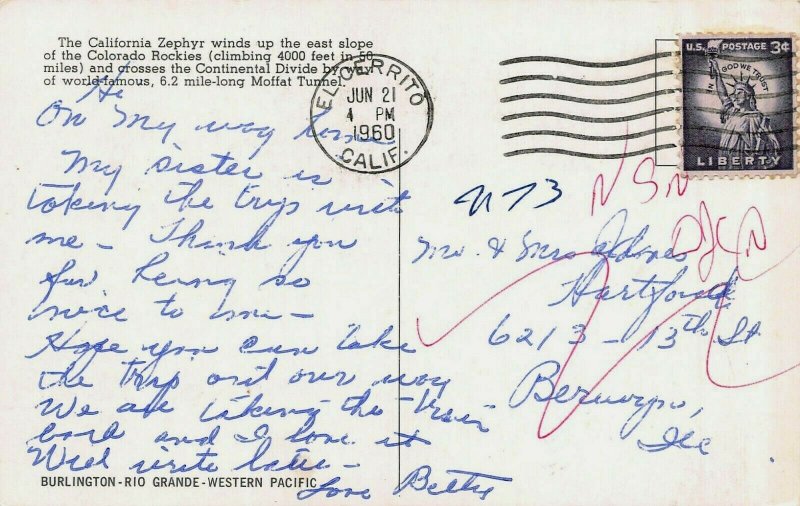 The California Zephyr winds up the east slope
of the Colorado Rockies (climbing 4000 feet in 50
miles) and crosses the Continental Divide by way
of world-famous, 6.2 mile-long Moffat Tunnel.
Hi
On my way home
My sister is
taking the trip with
me - Thank you
for being so
nice to me -
Hope you can take
the trip out our way
We are taking the train
back and I love it
Will write later -
Love Betty
BURLINGTON-RIO GRANDE-WESTERN PACIFIC
EL CERRITO
JUN 21
4 PM
1960
CALIF.
U.S. POSTAGE 3¢
IN GOD WE TRUST
LIBERTY
N73
NSN
Mr. & Mrs
Hartford
6213 - 13th St
Berwyn,
Ill